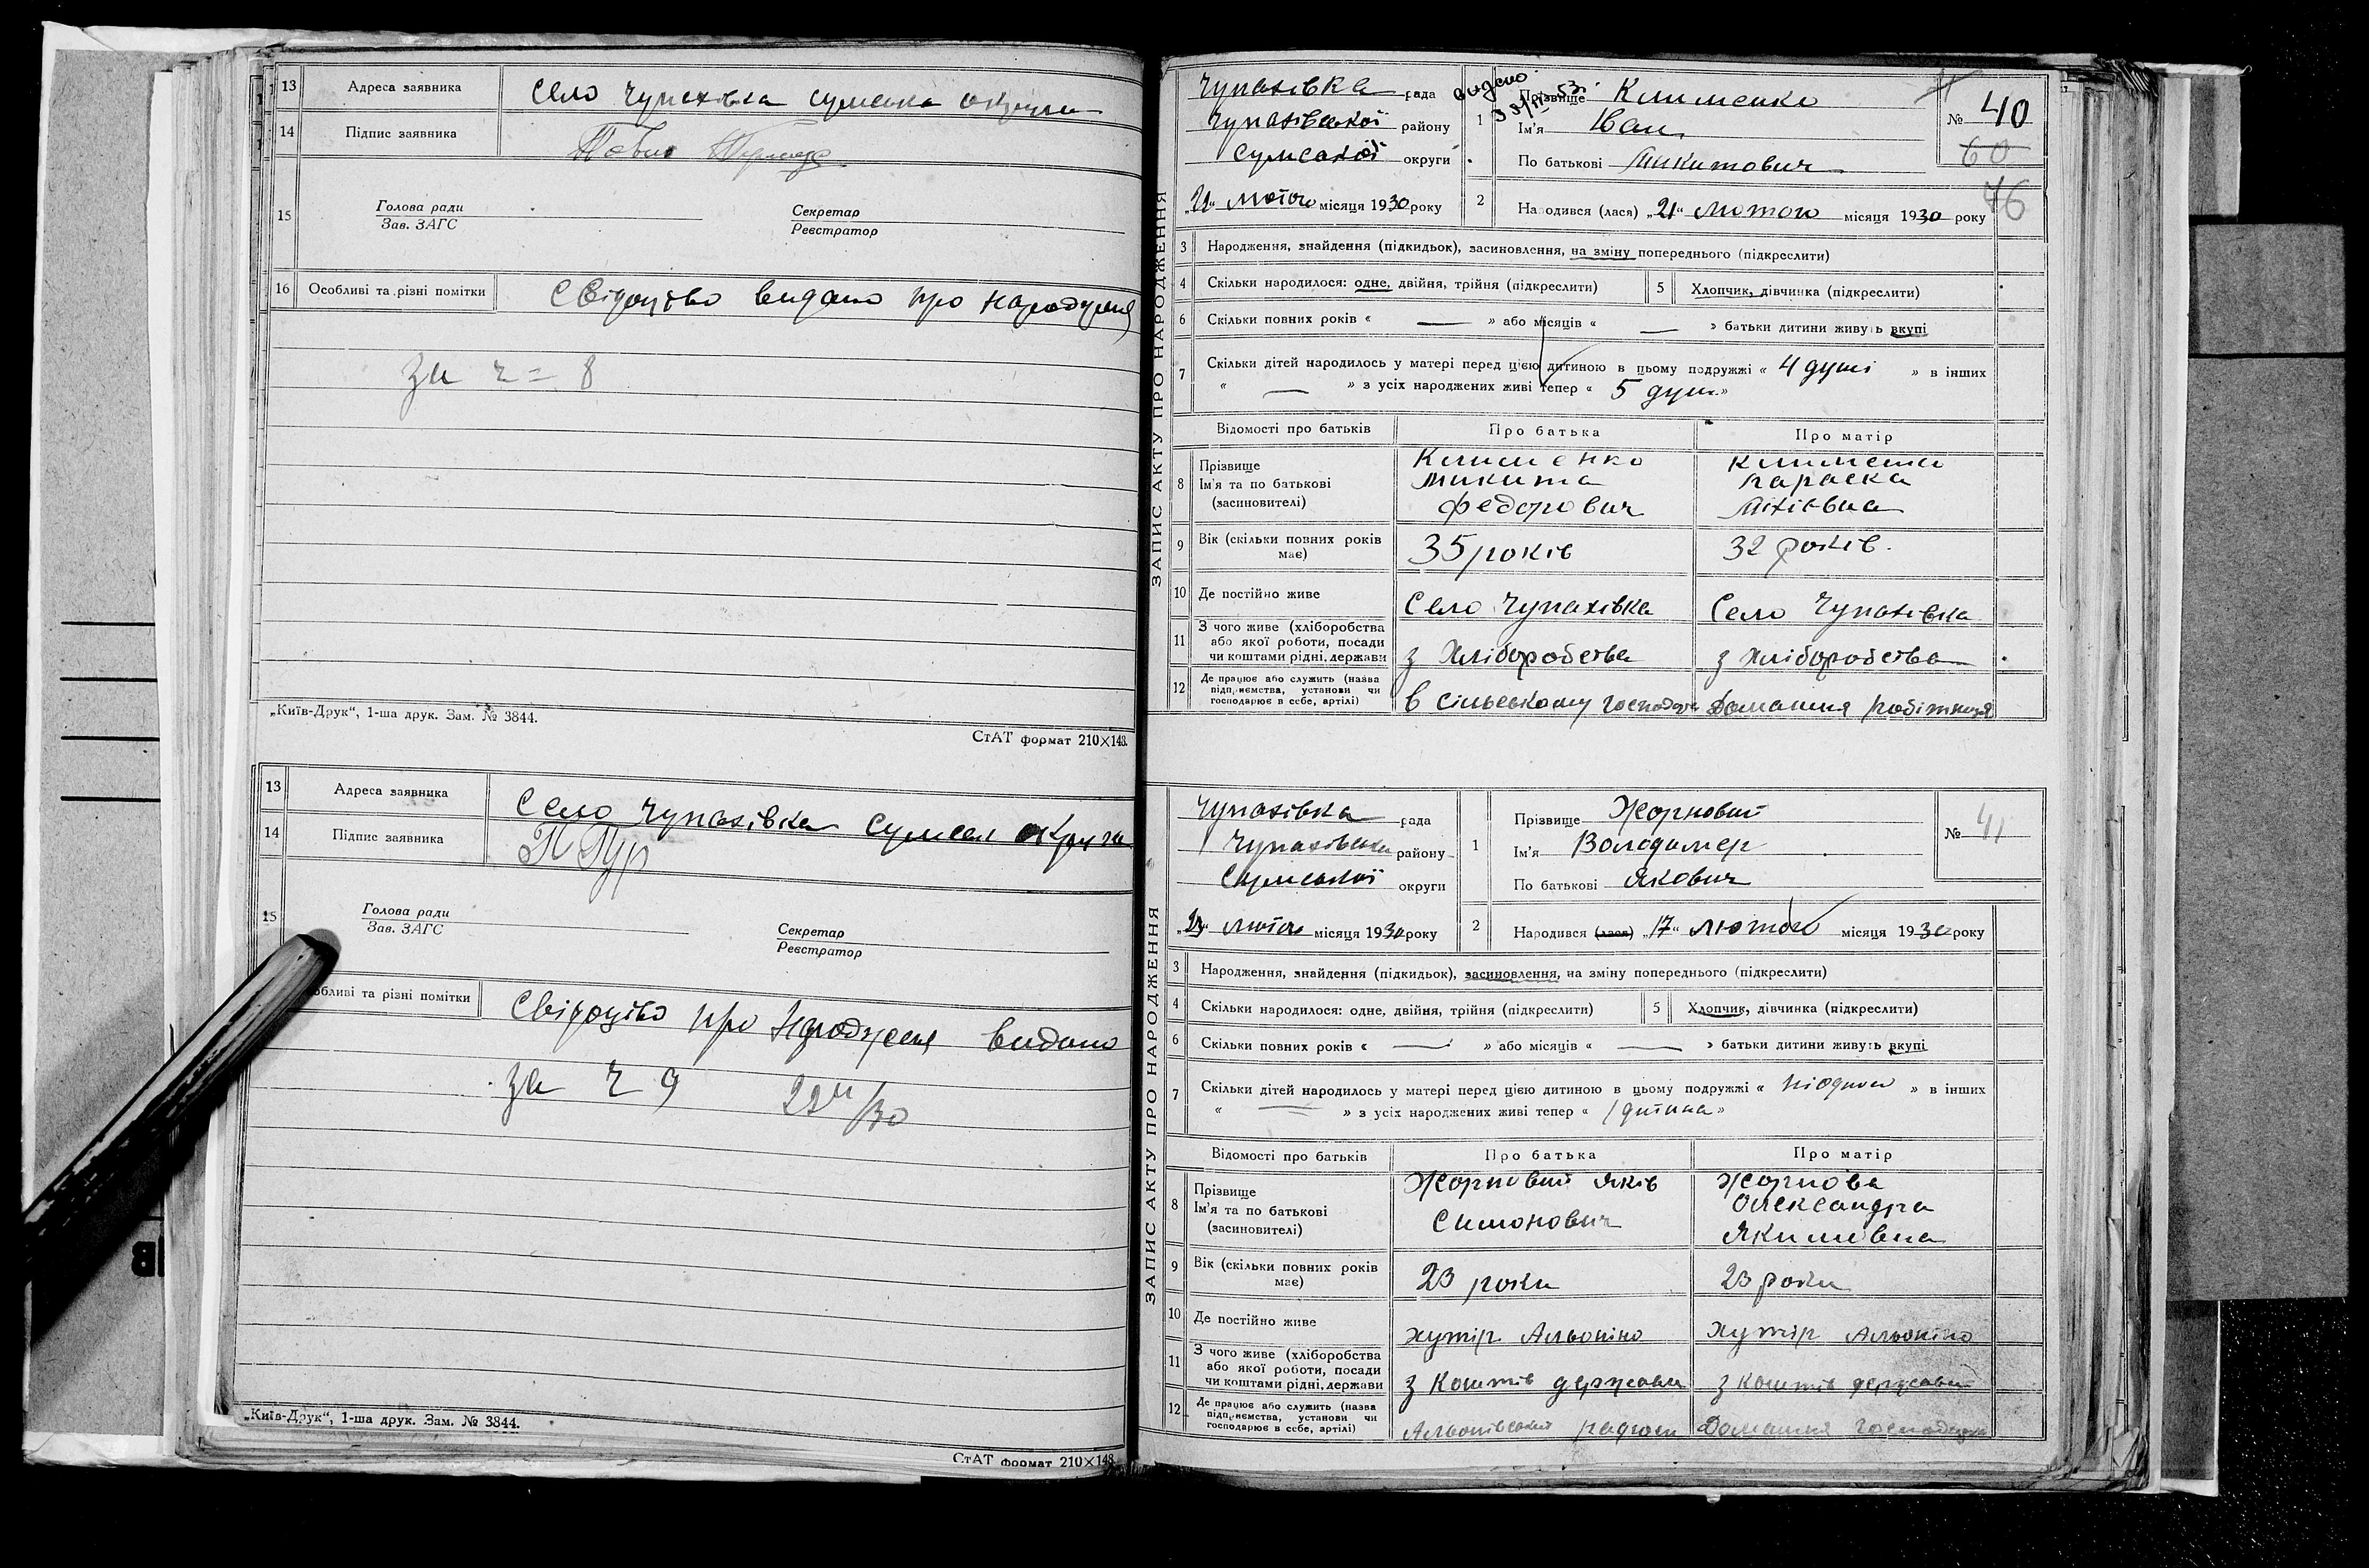 13 Адреса заявника Село Чупахівка Сумська округа
14 Підпис заявника
15 Голова ради Секретар
Зав. ЗАГС Реєстратор
16 Особливі та різні помітки Свідоцтво видано про народження
за ч = 8
„Київ-Друк“, 1-ша друк. Зам. № 3844.
СтАТ формат 210×148.
13 Адреса заявника Село Чупахівка Сумськ округа
14 Підпис заявника
15 Голова ради Секретар
Зав. ЗАГС Реєстратор
обливі та різні помітки Свідоцтво про народження видано
за ч 9 22 II/30
„Київ-Друк“, 1-ша друк. Зам. № 3844.
СтАТ формат 210×148.
ЗАПИС АКТУ ПРО НАРОДЖЕННЯ
Чупахівка рада
Чупахівської району
Сумської округи
„21“ лютого місяця 1930 року
видано
1 Прізвище Клименко
Ім'я Іван
По батькові Микитович
№ 40
60
76
2 Народився (лася) „21“ лютого місяця 1930 року
3 Народження, знайдення (підкидьок), засиновлення, на зміну попереднього (підкреслити)
4 Скільки народилося: одне, двійня, трійня (підкреслити) 5 Хлопчик, дівчинка (підкреслити)
6 Скільки повних років « — » або місяців « — » батьки дитини живуть вкупі
7 Скільки дітей народилось у матері перед цією дитиною в цьому подружжі « 4 душі » в інших
« — » з усіх народжених живі тепер « 5 душ »
Відомості про батьків Про батька Про матір
8 Прізвище Клименко
Ім'я та по батькові Микита Параска
(засиновителі) Федорович
9 Вік (скільки повних років має) 35 років 32 років.
10 Де постійно живе Село Чупахівка Село Чупахівка
11 З чого живе (хліборобства або якої роботи, посади чи коштами рідні, держави з хліборобства з хліборобства
12 Де працює або служить (назва підприємства, установи чи господарює в себе, артілі) в сільському господар Домашня робітниця
ЗАПИС АКТУ ПРО НАРОДЖЕННЯ
Чупахівка рада
Чупахівськи району
Сумської округи
лютого місяця 1930 року
1 Прізвище Жорновий
Ім'я Володимер
По батькові Якович
№ 41
2 Народився (лася) „17“ лютого місяця 1930 року
3 Народження, знайдення (підкидьок), засиновлення, на зміну попереднього (підкреслити)
4 Скільки народилося: одне, двійня, трійня (підкреслити) 5 Хлопчик, дівчинка (підкреслити)
6 Скільки повних років « — » або місяців « — » батьки дитини живуть вкупі
7 Скільки дітей народилось у матері перед цією дитиною в цьому подружжі « ніодного » в інших
« — » з усіх народжених живі тепер « 1 дитина »
Відомості про батьків Про батька Про матір
8 Прізвище Жорновий Яків Жорнова
Ім'я та по батькові Симонович Олександра
(засиновителі) Якимівна
9 Вік (скільки повних років має) 23 роки 23 роки
10 Де постійно живе хутір Альопіно хутір Альопіно
11 З чого живе (хліборобства або якої роботи, посади чи коштами рідні, держави з коштів держави з коштів держави
12 Де працює або служить (назва підприємства, установи чи господарює в себе, артілі) Альопівський радгосп Домашня